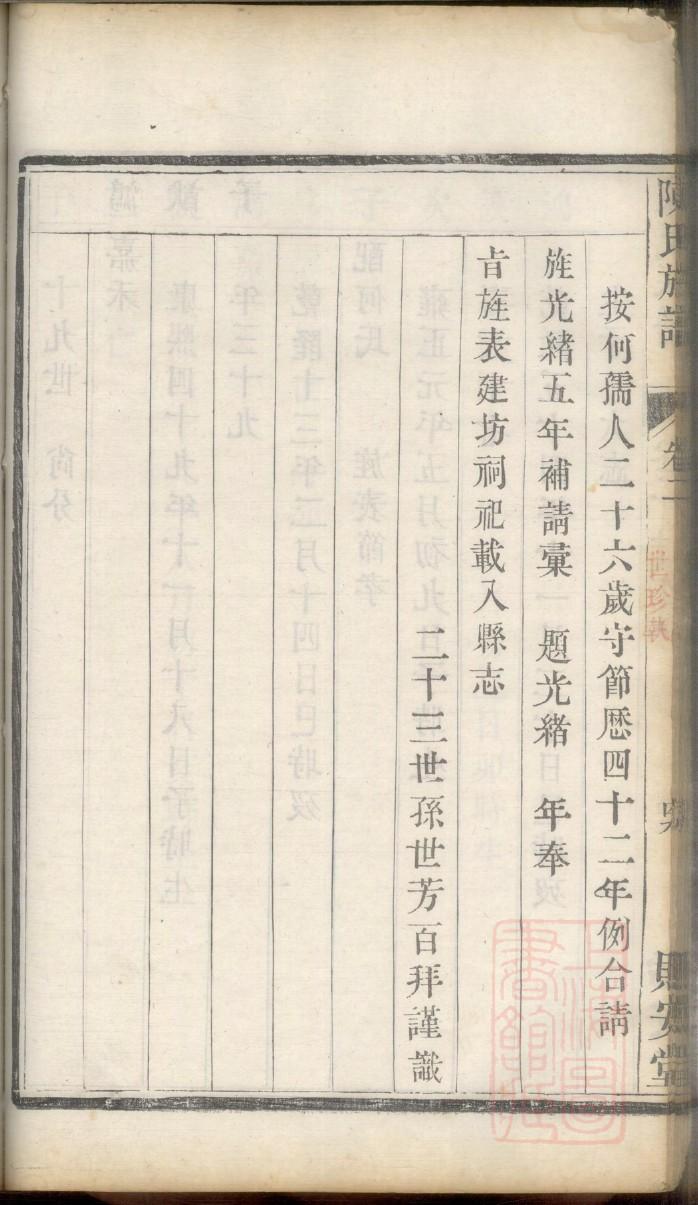 陳氏族譜
卷二
世珍執
則安堂
按何孺人二十六歲守節歷四十二年例合請
旌光緒五年補請彙　題光緒　年奉
旨旌表建坊祠祀載入縣志
二十三世孫世芳百拜謹識